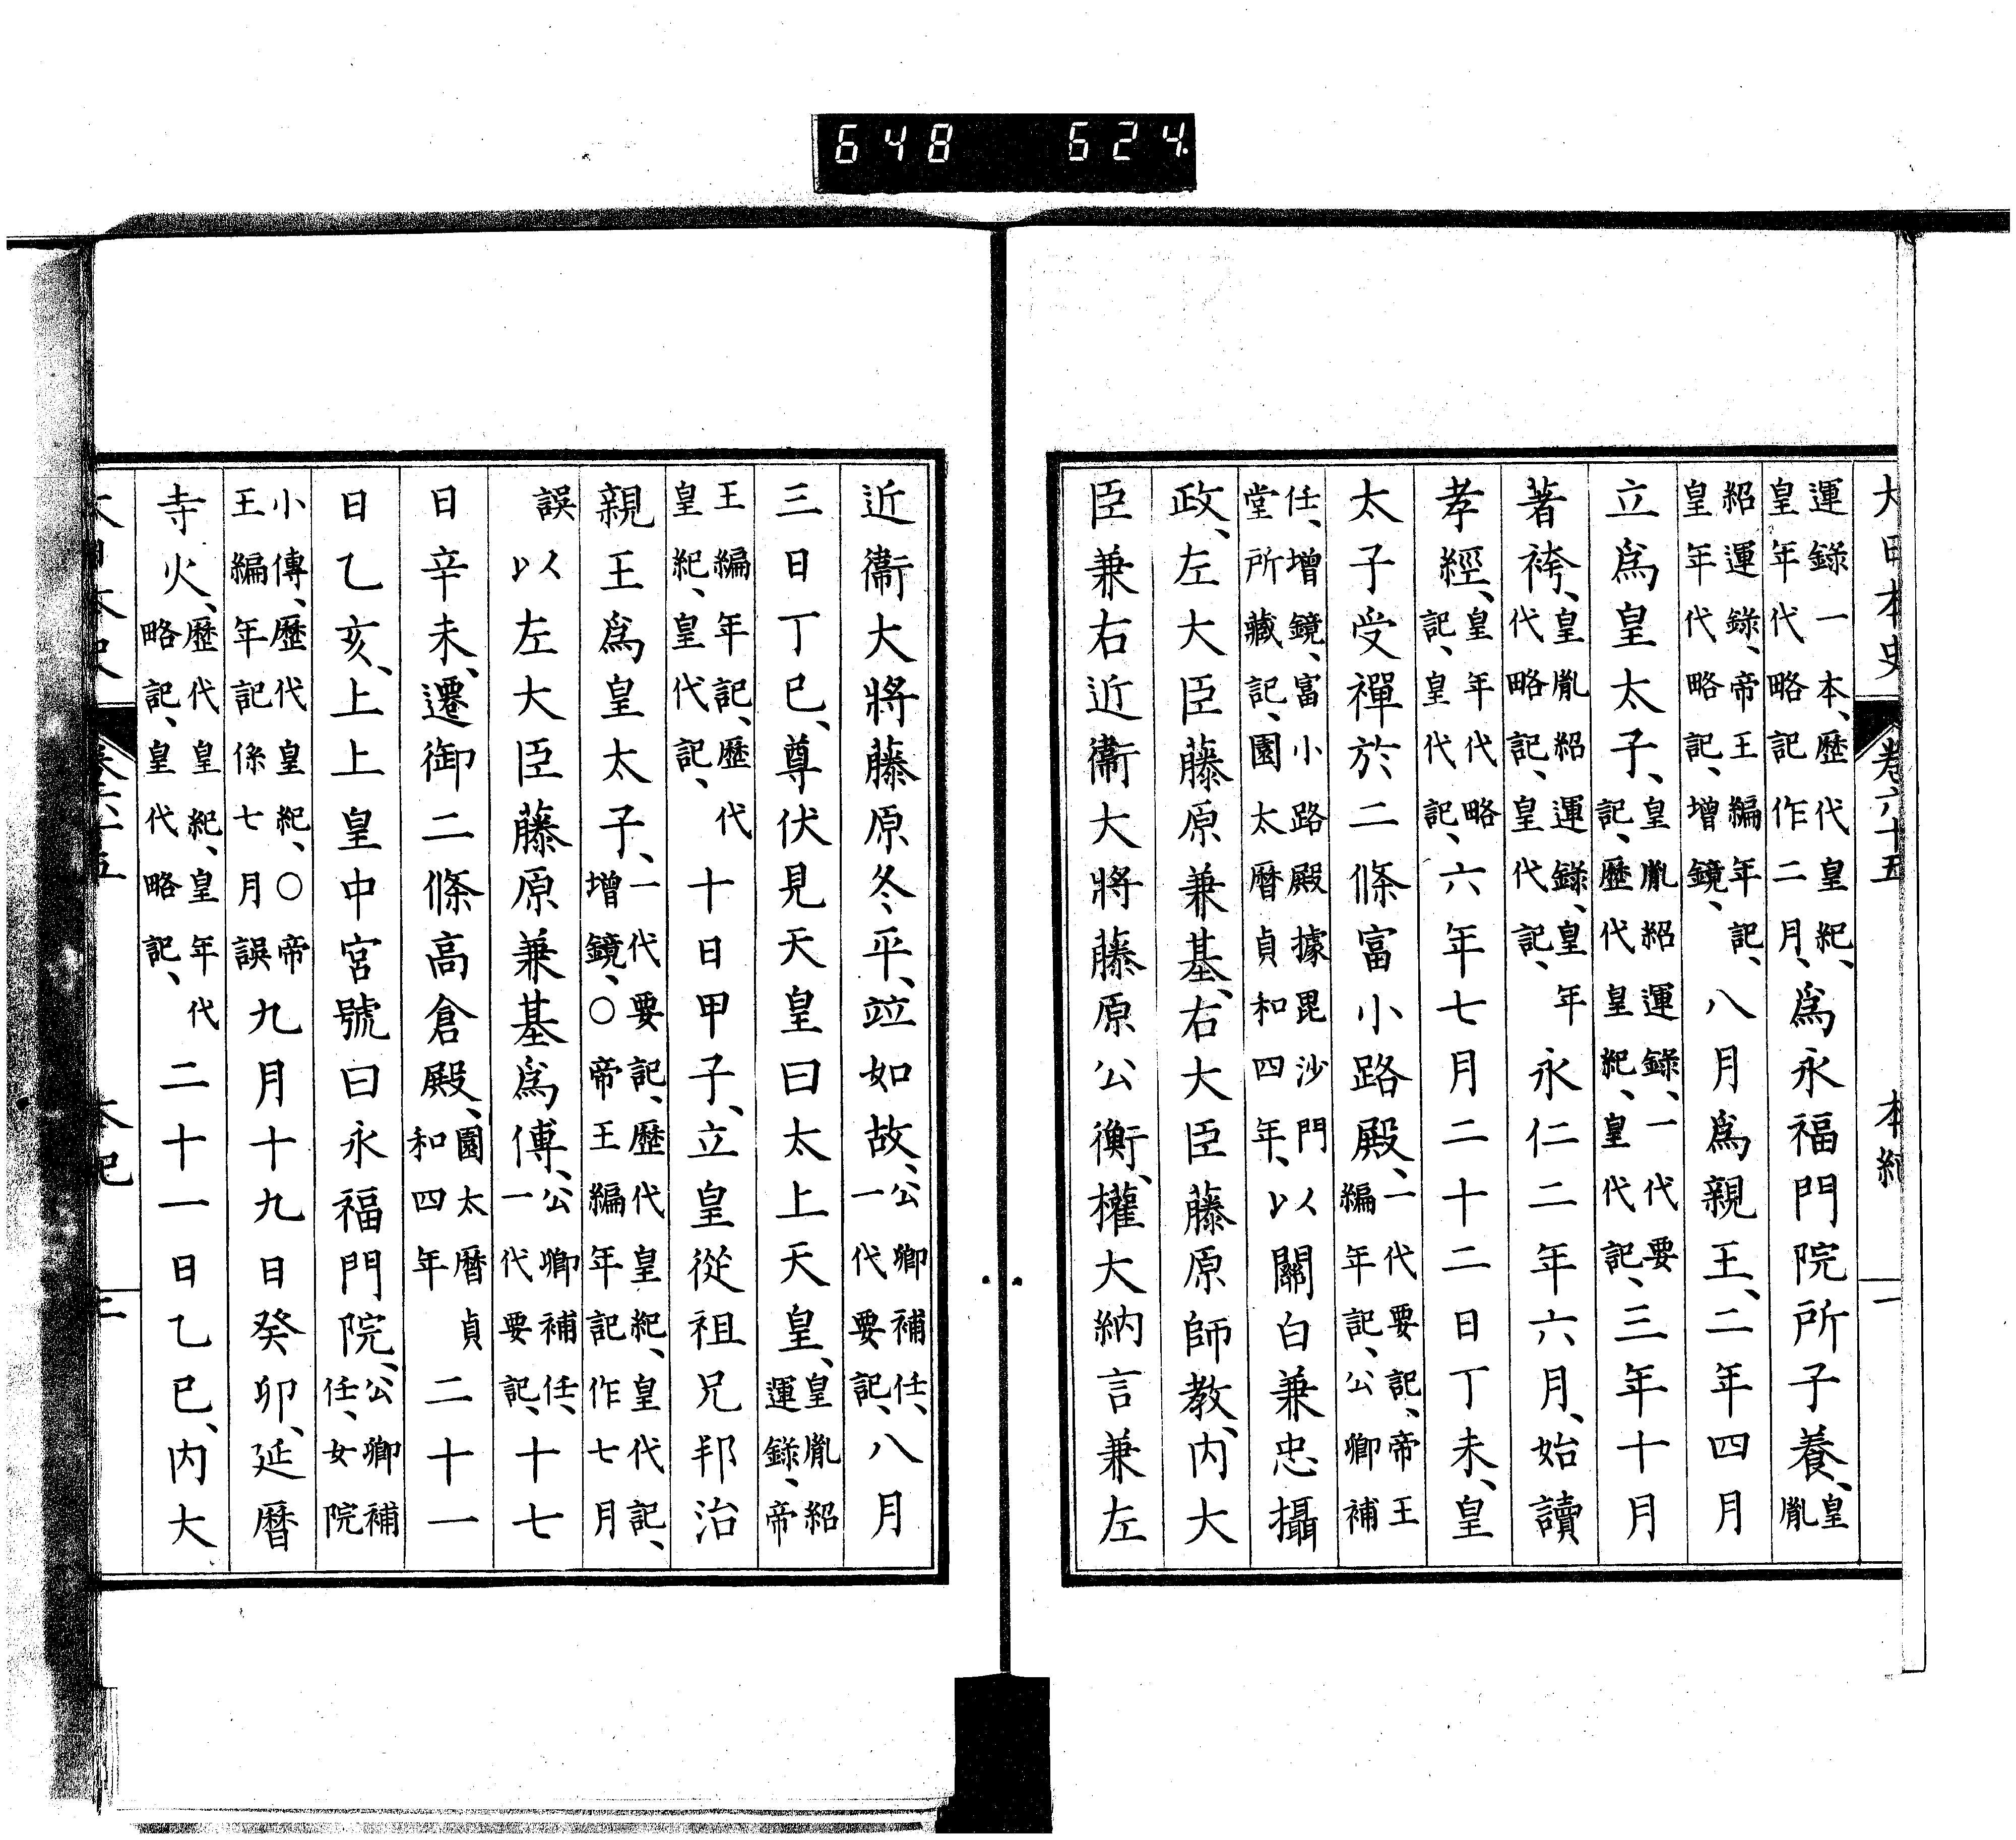 648 624
大日本史 卷六十五 本紀
運錄一本、歷代皇紀、皇年代略記作二月、爲永福門院所子養、皇胤
紹運錄、帝王編年記、皇年代略記、增鏡、八月爲親王、二年四月
立爲皇太子、皇胤紹運錄、一代要記、歷代皇紀、皇代記、三年十月
著袴、皇胤紹運錄、皇年代略記、皇代記、永仁二年六月、始讀
孝經、皇年代略記、皇代記、六年七月二十二日丁未、皇
太子受禪於二條富小路殿、一代要記、帝王編年記、公卿補
任、增鏡、富小路殿據毘沙門堂所藏記、園太曆貞和四年、以關白兼忠攝
政、左大臣藤原兼基、右大臣藤原師教、内大
臣兼右近衞大將藤原公衡、權大納言兼左
近衞大將藤原冬平、竝如故、公卿補任、一代要記、八月
三日丁巳、尊伏見天皇曰太上天皇、皇胤紹運錄、帝
王編年記、歷代皇紀、皇代記、十日甲子、立皇從祖兄邦治
親王爲皇太子、一代要記、歷代皇紀、皇代記、增鏡、○帝王編年記作七月
誤以左大臣藤原兼基爲傅、公卿補任、一代要記、十七
日辛未、遷御二條高倉殿、園太曆貞和四年二十一
日乙亥、上上皇中宮號曰永福門院、公卿補任、女院
小傳、歷代皇紀、○帝王編年記係七月誤九月十九日癸卯、延曆
寺火、歷代皇紀、皇年代略記、皇代略記、二十一日乙巳、内大